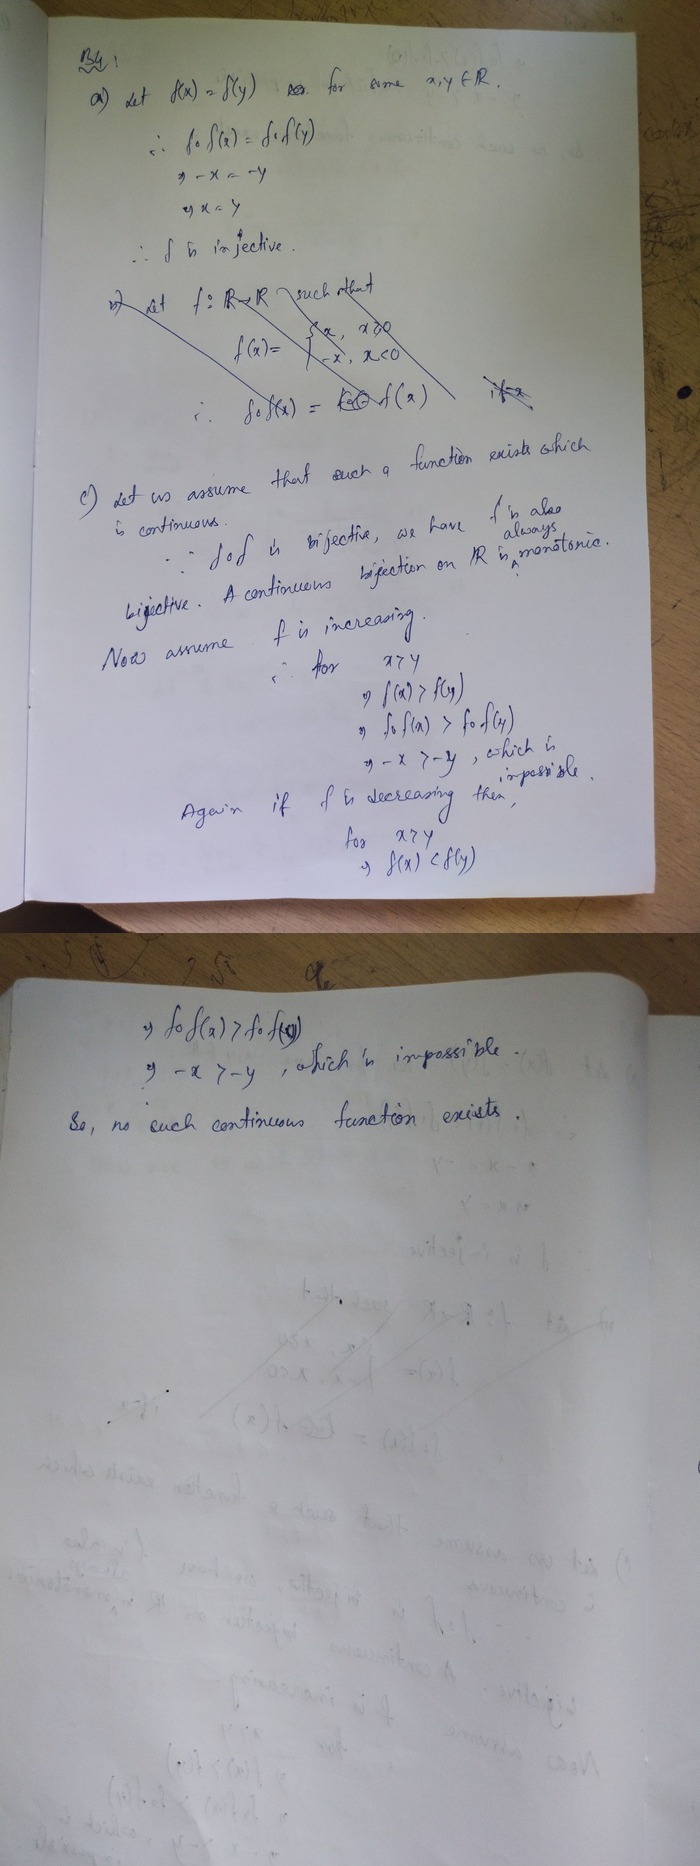 B4:
a) Let f(x) = f(y) for some x, y ∈ ℝ.
∴ f∘f(x) = f∘f(y)
⇒ -x = -y
⇒ x = y
∴ f is injective.
b) Let f: ℝ→ℝ such that
f(x) = { x, x≥0
-x, x<0
∴ f∘f(x) = f(x) if x
c) Let us assume that such a function exists which
is continuous.
∵ f∘f is bijective, we have f is also
bijective. A continuous bijection on ℝ is always monotonic.
Now assume f is increasing.
∴ for x>y
⇒ f(x) > f(y)
⇒ f∘f(x) > f∘f(y)
⇒ -x > -y, which is
impossible.
Again if f is decreasing then,
for x>y
⇒ f(x) < f(y)
⇒ f∘f(x) > f∘f(y)
⇒ -x > -y, which is impossible.
So, no such continuous function exists.